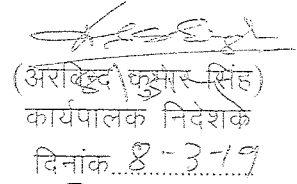 (अरबिन्द कुमार सिंह)
कार्यपालक निदेशक
दिनांक 8-3-19